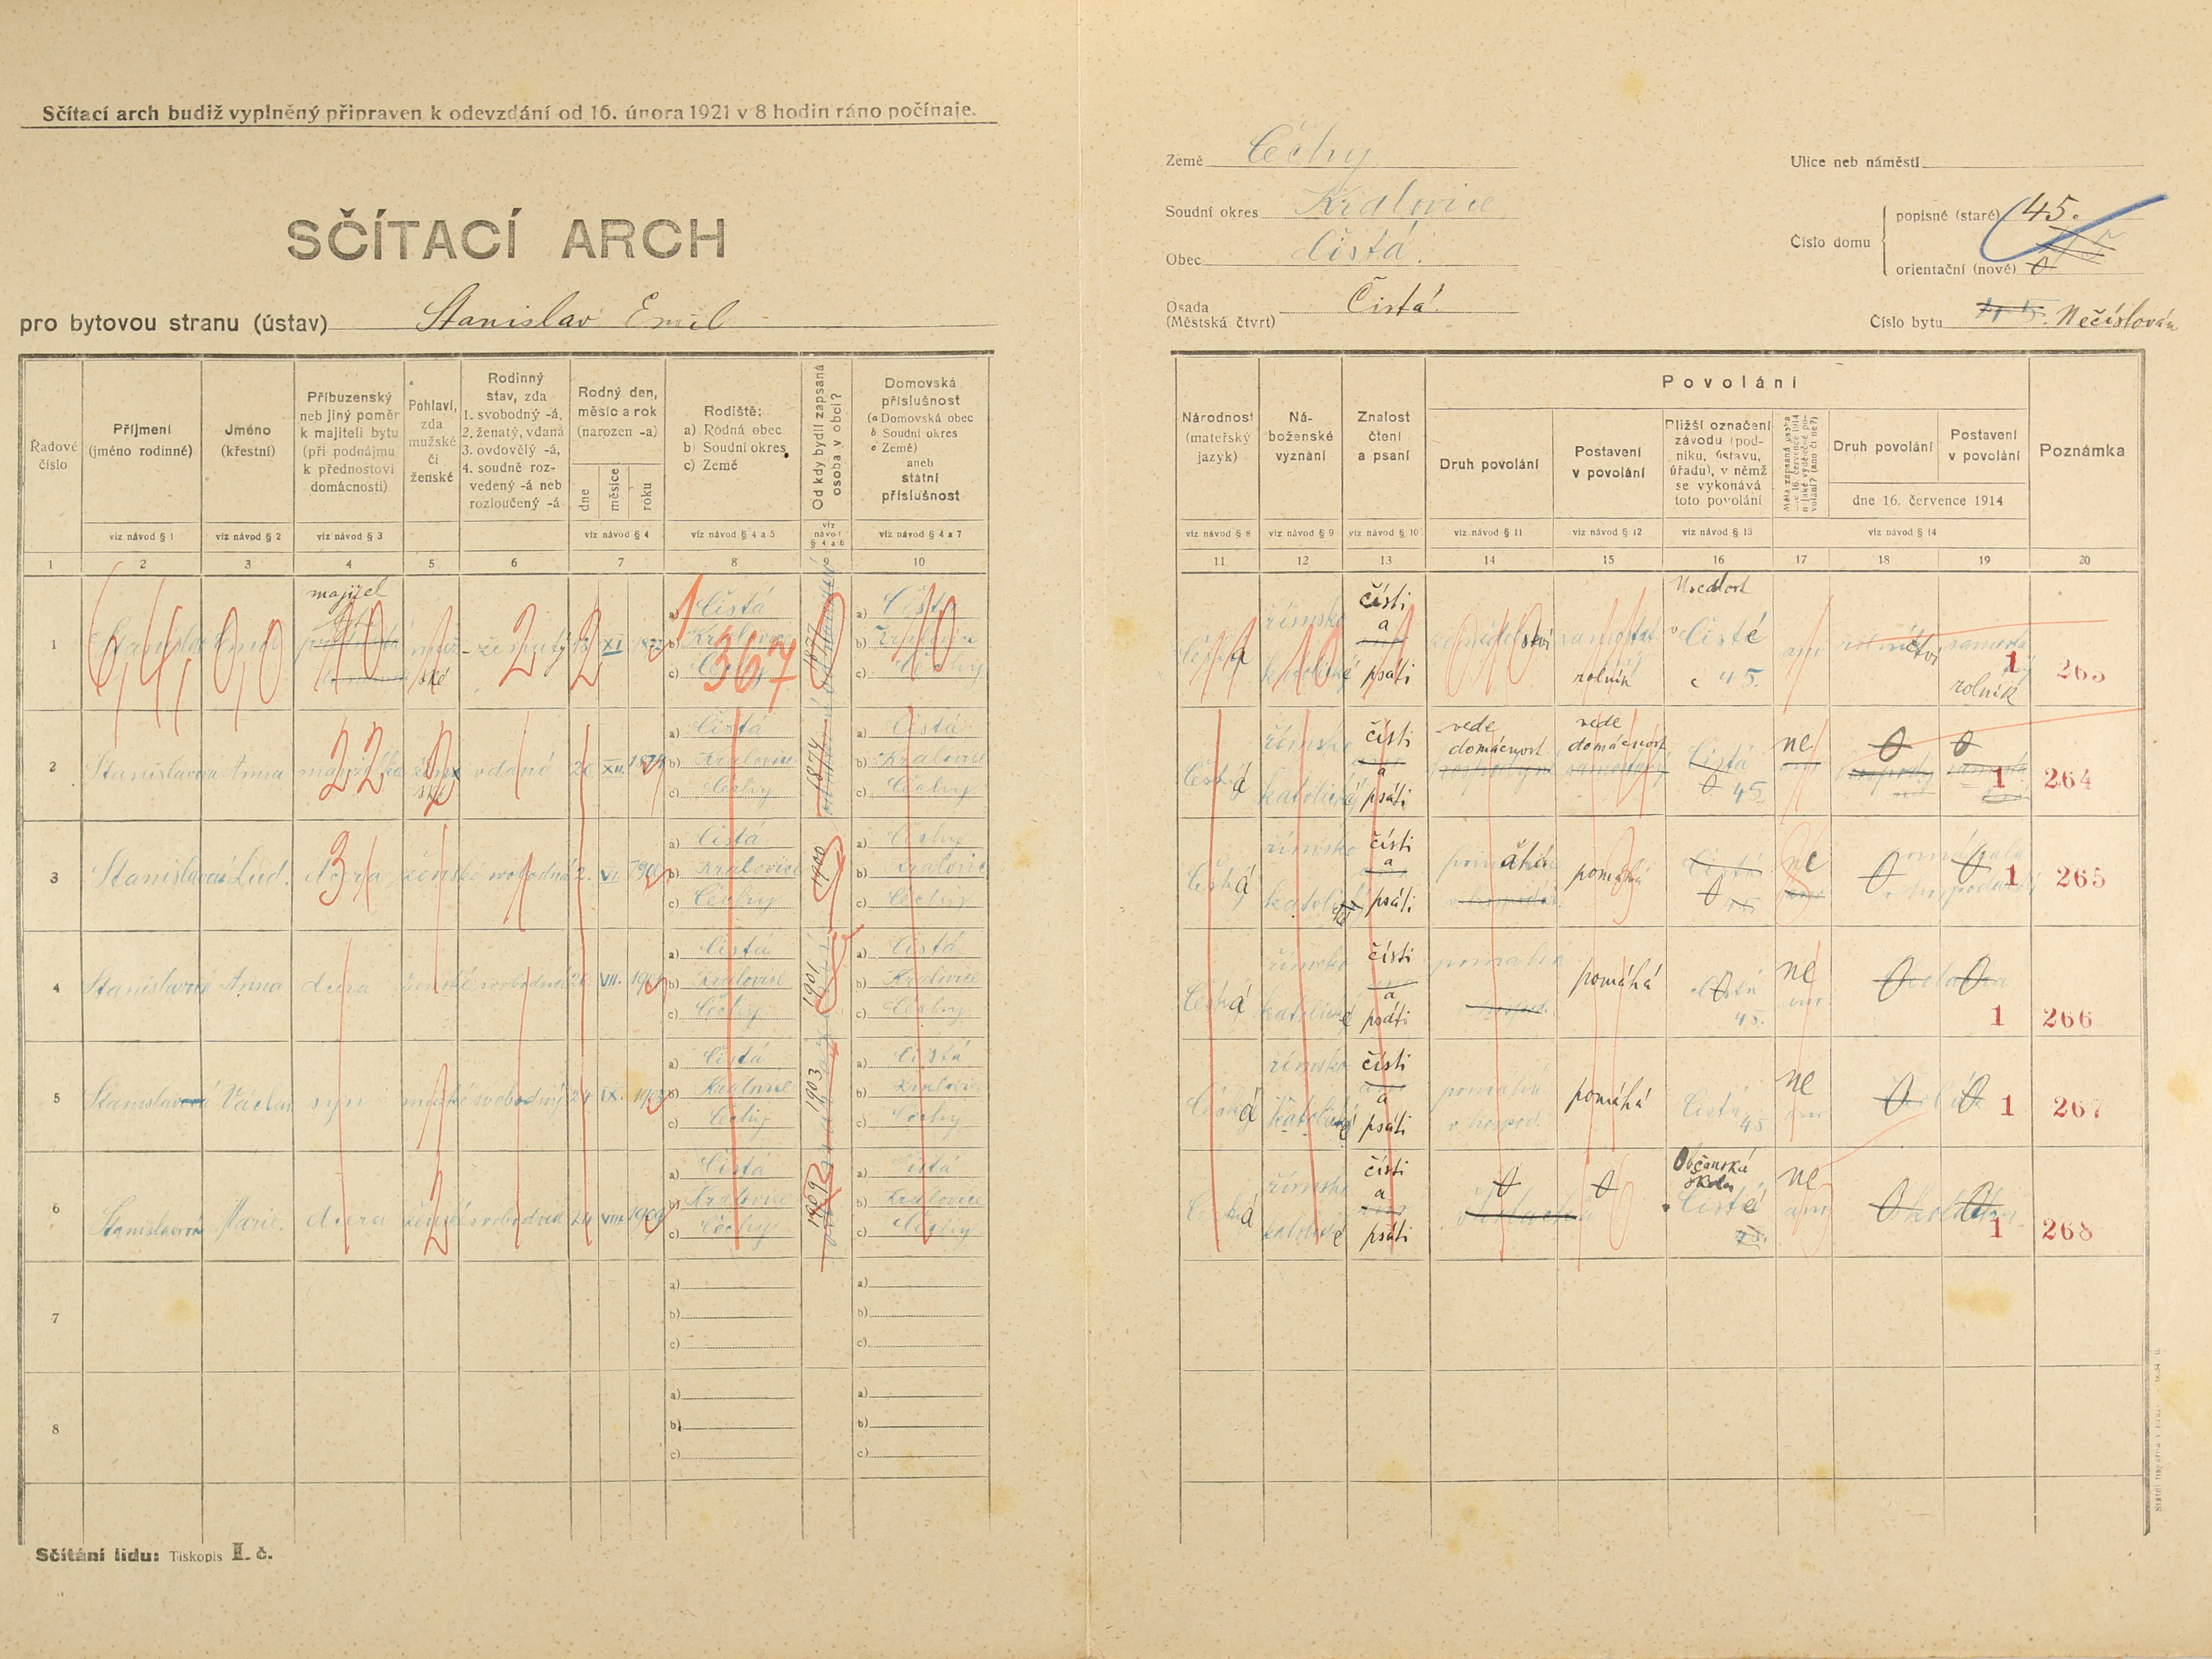 Sčítací arch budiž vyplněný připraven k odevzdání od 16. února 1921 v 8 hodin ráno počínaje.
SČÍTACÍ ARCH
pro bytovou stranu (ústav) Stanislav Emil
Země Čechy
Soudní okres Kralovice
Obec Čistá.
Osada (Městská čtvrt) Čistá
Ulice neb náměstí
Číslo domu
popisné (staré) 45.
orientační (nové) 0
Číslo bytu Nečíslován
Řadové číslo
Příjmení (jméno rodinné)
Jméno (křestní)
Příbuzenský neb jiný poměr k majiteli bytu (při podnájmu k přednostovi domácnosti)
Pohlaví, zda mužské či ženské
Rodinný stav, zda 1. svobodný -á, 2. ženatý, vdaná 3. ovdovělý -á, 4. soudně rozvedený -á neb rozloučený -á
Rodný den, měsíc a rok (narozen -a)
dne měsíce roku
Rodiště: a) Rodná obec b) Soudní okres c) Země
Od kdy bydlí zapsaná osoba v obci?
Domovská příslušnost (a Domovská obec b Soudní okres c Země) aneb státní příslušnost
Národnost (mateřský jazyk)
Náboženské vyznání
Znalost čtení a psaní
Povolání
Druh povolání
Postavení v povolání
Bližší označení závodu (podniku, ústavu, úřadu), v němž se vykonává toto povolání
Druh povolání
Postavení v povolání
dne 16. července 1914
Poznámka
viz návod § 1
viz návod § 2
viz návod § 3
viz návod § 4
viz návod § 4 a 5
viz návod § 4 a 6
viz návod § 4 a 7
viz návod § 8
viz návod § 9
viz návod § 10
viz návod § 11
viz návod § 12
viz návod § 13
viz návod § 14
1 2 3 4 5 6 7 8 9 10 11 12 13 14 15 16 17 18 19 20
1 Emil majitel ženatý XI
a) Čistá
b) Kralovice
c) Čechy
a) Čistá
b) Kralovice
c) Čechy
česká římsko katolické čísti a psáti zemědělství rolník Čisté č 45. rolnictví rolník 1 263
2 Stanislavová Anna manželka ženské vdaná 26 XII.
a) Čistá
b) Kralovice
c) Čechy
1874
a) Čistá
b) Kralovice
c) Čechy
Česká římsko katolické čísti a psáti vede domácnost vede domácnost Čistá 0 45 ne 0 0 1 264
3 Stanislavová Lud. dcera ženské svobodná 2. VI. 1900
a) Čistá
b) Kralovice
c) Čechy
1900
a) Čechy
b) Kralovice
c) Čechy
Česká římsko katolické čísti a psáti pomáhá 0 ne 0 0 1 265
4 Stanislavová Anna dcera ženské svobodná 26 VII. 1901
a) Čistá
b) Kralovice
c) Čechy
1901
a) Čistá
b) Kralovice
c) Čechy
Česká římsko katolické čísti a psáti pomáhá pomáhá Čistá 0 45. ne 0 0 1 266
5 Stanislav Václav syn mužské svobodný 24 IX. 1903
a) Čistá
b) Kralovice
c) Čechy
1903
a) Čistá
b) Kralovice
c) Čechy
Česká římsko katolické čísti a psáti pomáhá v hospod. pomáhá Čistá 45 ne 0 0 1 267
6 Stanislavová Marie. dcera ženské svobodná 24 VIII. 1909
a) Čistá
b) Kralovice
c) Čechy
1909
a) Čistá
b) Kralovice
c) Čechy
Česká římsko katolické čísti a psáti 0 0 Občanská škola Čisté ne 0 0 1 268
7
a)
b)
c)
a)
b)
c)
8
a)
b)
c)
a)
b)
c)
Sčítání lidu: Tiskopis II. č.